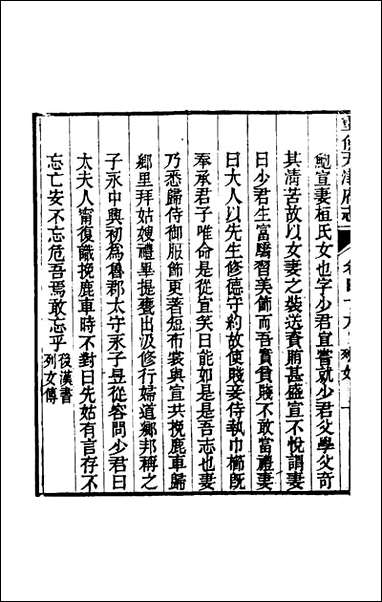 重修天津府志 卷四十九 列女
鮑宣妻桓氏女也字少君宣嘗就少君父學父奇
其清苦故以女妻之裝送資賄甚盛宣不悅謂妻
曰少君生富驕習美飾而吾實貧賤不敢當禮妻
曰大人以先生修德守約故使賤妾侍執巾櫛旣
奉承君子唯命是從宣笑曰能如是是吾志也妻
乃悉歸侍御服飾更著短布裳與宣共挽鹿車歸
鄉里拜姑嫂禮畢提甕出汲修行婦道鄉邦稱之
子永中興初為魯郡太守永子昱從容問少君曰
太夫人甯復識挽鹿車時不對曰先姑有言存不
忘亡安不忘危吾焉敢忘乎 後漢書
列女傳